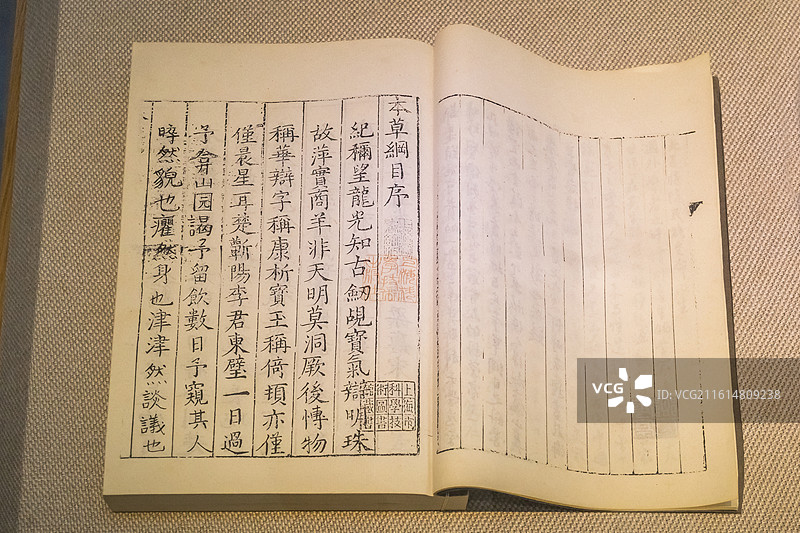 本草綱目序
紀穪望龍光知古釼覘寶氣辯明珠
故萍實商羊非天明莫洞厥後愽物
稱華辯字稱康析寶玉稱倚頓亦僅
僅晨星耳楚蘄陽李君東璧一日過
予弇山园謁予留飲數日予窺其人
睟然貌也癯然身也津津然談議也
上海市
科學技
術圖書
館藏書
VCG
VCG211614809238